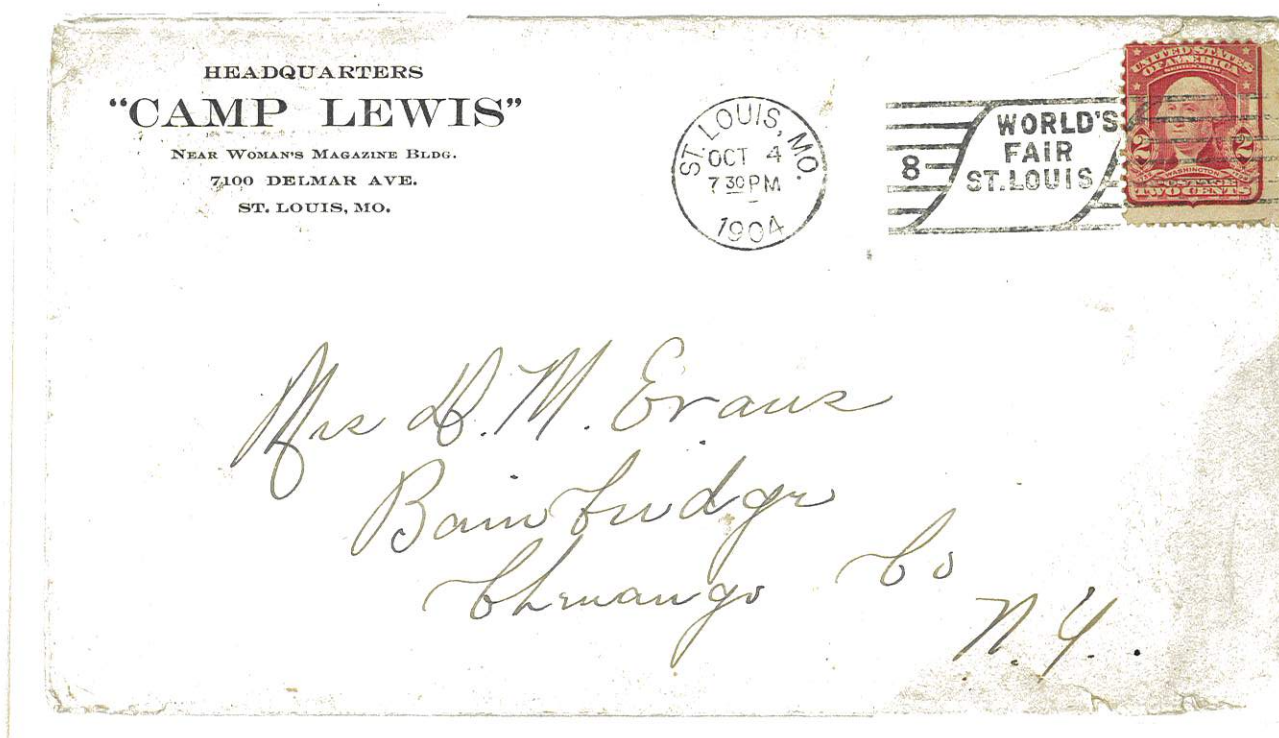 HEADQUARTERS
"CAMP LEWIS"
NEAR WOMAN'S MAGAZINE BLDG.
7100 DELMAR AVE.
ST. LOUIS, MO.
ST. LOUIS, MO.
OCT 4
7 30 PM
1904
8
WORLD'S
FAIR
ST. LOUIS
UNITED STATES
OF AMERICA
2 2
WASHINGTON
POSTAGE
TWO CENTS
Mrs D. M. Evans
Bainbridge
Chenango Co
N.Y.